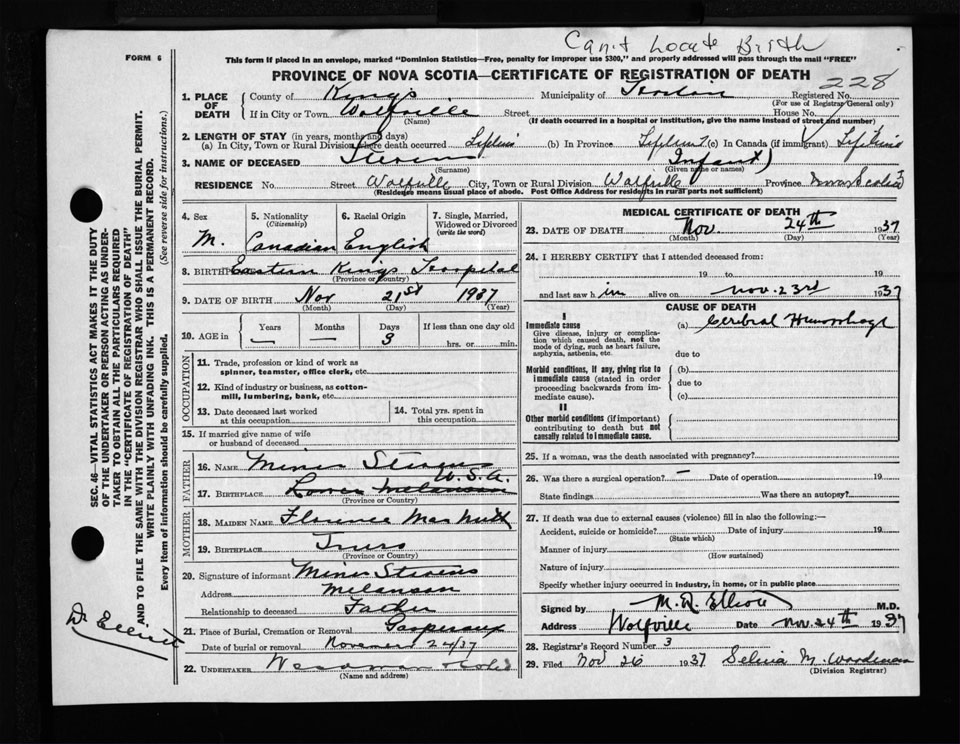 Can't Locate Birth
FORM 6
This form if placed in an envelope, marked "Dominion Statistics—Free, penalty for improper use $300," and properly addressed will pass through the mail "FREE"
PROVINCE OF NOVA SCOTIA—CERTIFICATE OF REGISTRATION OF DEATH
228
1. PLACE OF DEATH County of Kings Municipality of Horton Registered No.
(For use of Registrar General only)
If in City or Town Wolfville Street House No.
(Name) (If death occurred in a hospital or institution, give the name instead of street and number)
2. LENGTH OF STAY (in years, months and days)
(a) In City, Town or Rural Division where death occurred Lifetime (b) In Province Lifetime (c) In Canada (if immigrant) Lifetime
3. NAME OF DECEASED Stevens Infant)
(Surname) (Given name or names)
RESIDENCE No. Street Wolfville City, Town or Rural Division Wolfville Province Nova Scotia 3
(Residence means usual place of abode. Post Office Address for residents in rural parts not sufficient)
4. Sex M.
5. Nationality (Citizenship) Canadian
6. Racial Origin English
7. Single, Married, Widowed or Divorced (write the word)
8. BIRTHPLACE Eastern Kings Hospital
(Province or Country)
9. DATE OF BIRTH Nov 21st 1937
(Month) (Day) (Year)
10. AGE in Years Months Days If less than one day old
— — 3 hrs. or min.
OCCUPATION
11. Trade, profession or kind of work as
spinner, teamster, office clerk, etc.
12. Kind of industry or business, as cotton-
mill, lumbering, bank, etc.
13. Date deceased last worked
at this occupation
14. Total yrs. spent in
this occupation
15. If married give name of wife
or husband of deceased
FATHER
16. NAME Miner Stevens
17. BIRTHPLACE Lower Melanson
(Province or Country)
MOTHER
18. MAIDEN NAME Florence Mac Nutt
19. BIRTHPLACE Truro
(Province or Country)
20. Signature of informant Miner Stevens
Address Melanson
Relationship to deceased Father
21. Place of Burial, Cremation or Removal Gaspereau
Date of burial or removal November 24/37
22. UNDERTAKER
(Name and address)
MEDICAL CERTIFICATE OF DEATH
23. DATE OF DEATH Nov. 24th 1937
(Month) (Day) (Year)
24. I HEREBY CERTIFY that I attended deceased from:
19 to 19
and last saw him alive on Nov. 23rd 1937
CAUSE OF DEATH
I
Immediate cause
Give disease, injury or complica-
tion which caused death, not the
mode of dying, such as heart failure,
asphyxia, asthenia, etc.
(a) Cerebral Hemorrhage
due to
Morbid conditions, if any, giving rise to
immediate cause (stated in order
proceeding backwards from im-
mediate cause).
(b)
due to
(c)
II
Other morbid conditions (if important)
contributing to death but not
causally related to immediate cause.
25. If a woman, was the death associated with pregnancy?
26. Was there a surgical operation? — Date of operation 19
State findings Was there an autopsy?
27. If death was due to external causes (violence) fill in also the following:—
Accident, suicide or homicide? Date of injury 19
(State which)
Manner of injury
(How sustained)
Nature of injury
Specify whether injury occurred in industry, in home, or in public place
Signed by M. R. Elliott M.D.
Address Wolfville Date Nov. 24th 1937
28. Registrar's Record Number 3
29. Filed Nov 26 1937 M.
(Division Registrar)
SEC. 46—VITAL STATISTICS ACT MAKES IT THE DUTY
OF THE UNDERTAKER OR PERSON ACTING AS UNDER-
TAKER TO OBTAIN ALL THE PARTICULARS REQUIRED
IN THE "CERTIFICATE OF REGISTRATION OF DEATH"
AND TO FILE THE SAME WITH THE DIVISION REGISTRAR WHO SHALL ISSUE THE BURIAL PERMIT.
WRITE PLAINLY WITH UNFADING INK. THIS IS A PERMANENT RECORD.
Every item of information should be carefully supplied. (See reverse side for instructions.)
Dr Elliott